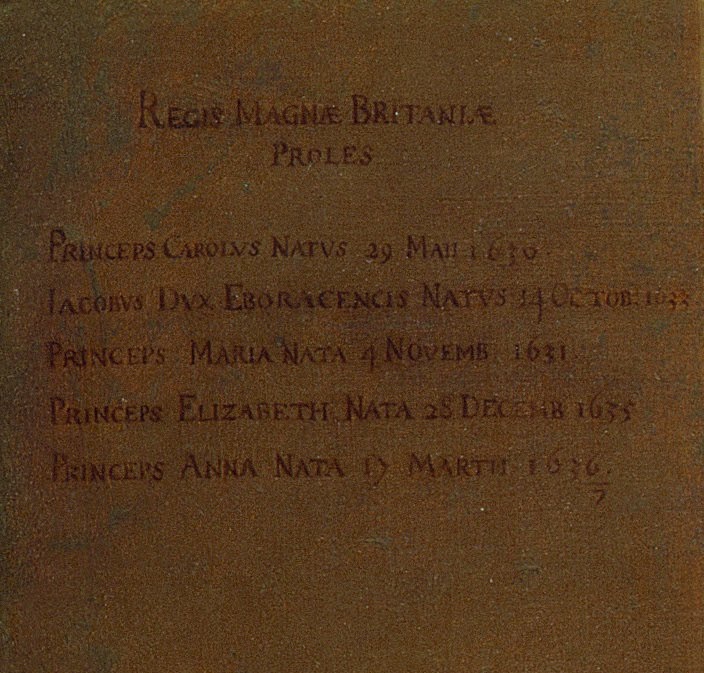 REGIS MAGNÆ BRITANIÆ
PROLES
PRINCEPS CAROLVS NATVS 29 MAII 1630.
IACOBVS DVX EBORACENCIS NATVS 14 OCTOB: 1633
PRINCEPS MARIA NATA 4 NOVEMB 1631.
PRINCEPS ELIZABETH NATA 28 DECEMB 1635
PRINCEPS ANNA NATA 17 MARTII 1636.
7